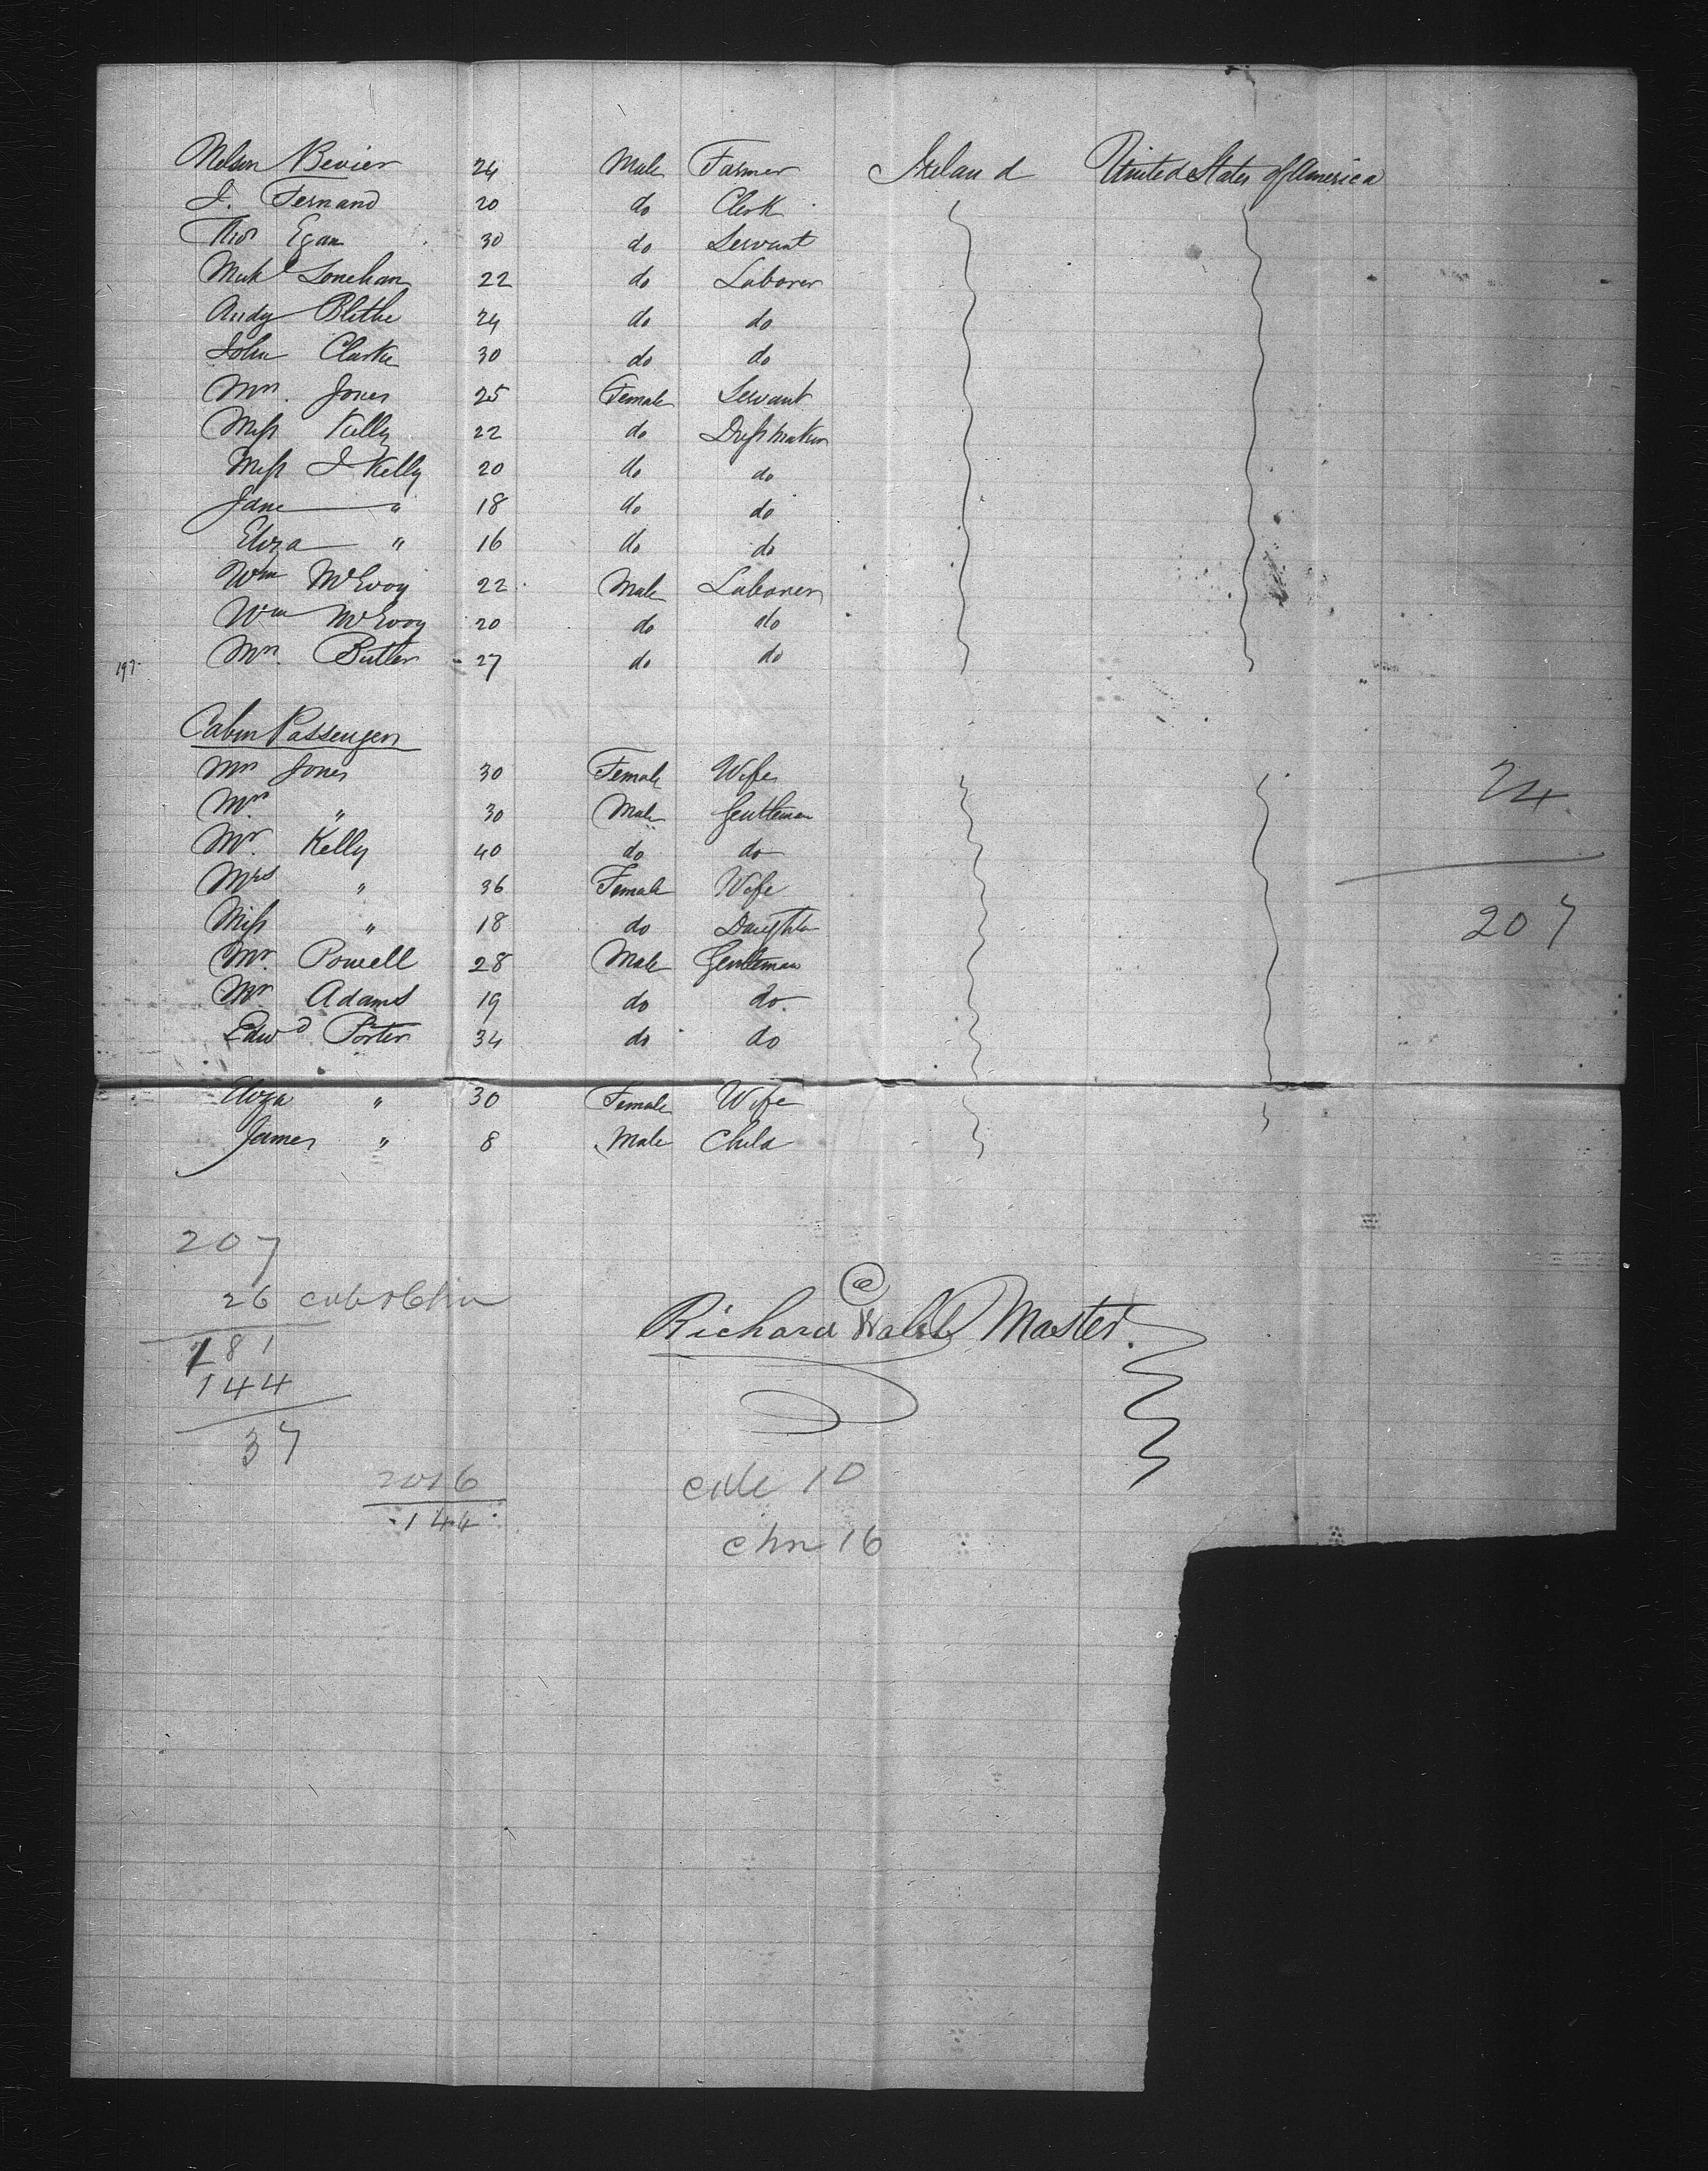 Nelson Bevier 24 Male Farmer Ireland United States of America
J. Fernand 20 do Clerk
Thos Egan 30 do Servant
Mich Lonehan 22 do Laborer
Andy Blithe 24 do do
John Clarke 30 do do
Mrs. Jones 25 Female Servant
Miss Kelly 22 do Dressmaker
Miss J Kelly 20 do do
Jane " 18 do do
Eliza " 16 do do
Wm McEvoy 22 Male Laborer
Wm McEvoy 20 do do
197 Mr. Butler 27 do do
Cabin Passengers
Mrs Jones 30 Female Wife
24
Mr. " 30 Male Gentleman
Mr. Kelly 40 do do
Mrs " 36 Female Wife
Miss " 18 do Daughter
207
Mr. Powell 28 Male Gentleman
Mr. Adams 19 do do
Edwd Porter 34 do do
Eliza " 30 Female Wife
James " 8 Male Child
207
26
181
Richard Master.
144
37
2016
144
10
chn 16